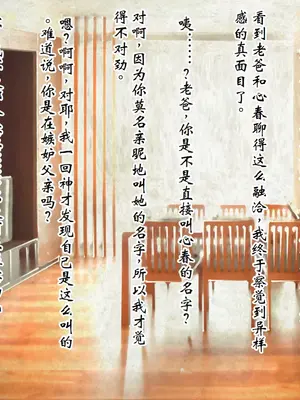 看到老爸和心春聊得这么融洽，我终于察觉到异样
感的真面目了。
咦……？老爸，你是不是直接叫心春的名字？
对啊，因为你莫名亲昵地叫她的名字，所以我才觉
得不对劲。
嗯？啊啊，对耶，我一回神才发现自己是这么叫的
。难道说，你是在嫉妒父亲吗？